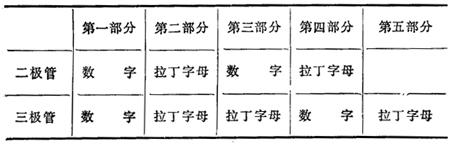 第一部分 第二部分 第三部分 第四部分 第五部分
二极管 数 字 拉丁字母 数 字 拉丁字母
三极管 数 字 拉丁字母 拉丁字母 数 字 拉丁字母